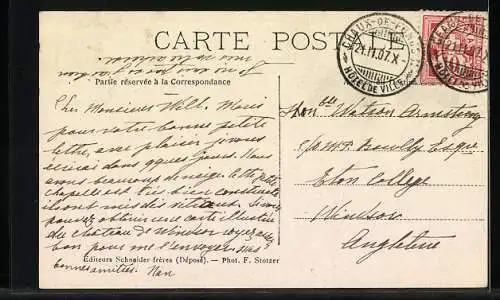 CARTE POSTALE
CHAUX-DE-FONDS
21.II.07.X
HÔTEL DE VILLE
Partie réservée à la Correspondance
Cher Monsieur Will. Merci
pour votre bonne petite
lettre, avec plaisir je vous
écrirai dans qques jours. Nous
avons beaucoup de neige. La petite
chapelle est très bien construite
ils ont mis des vitraux. Si vous
pouvez obtenir une carte illustrée
du château de Windsor soyez assez
bon pour me l'envoyer. Mes
bonnes amitiés. Nan
Honble Watson Armstrong
c/o Mr. Bouilly Esqre
Eton College
Windsor
Angleterre
Editeurs Schneider frères (Déposé). — Phot. F. Stotzer